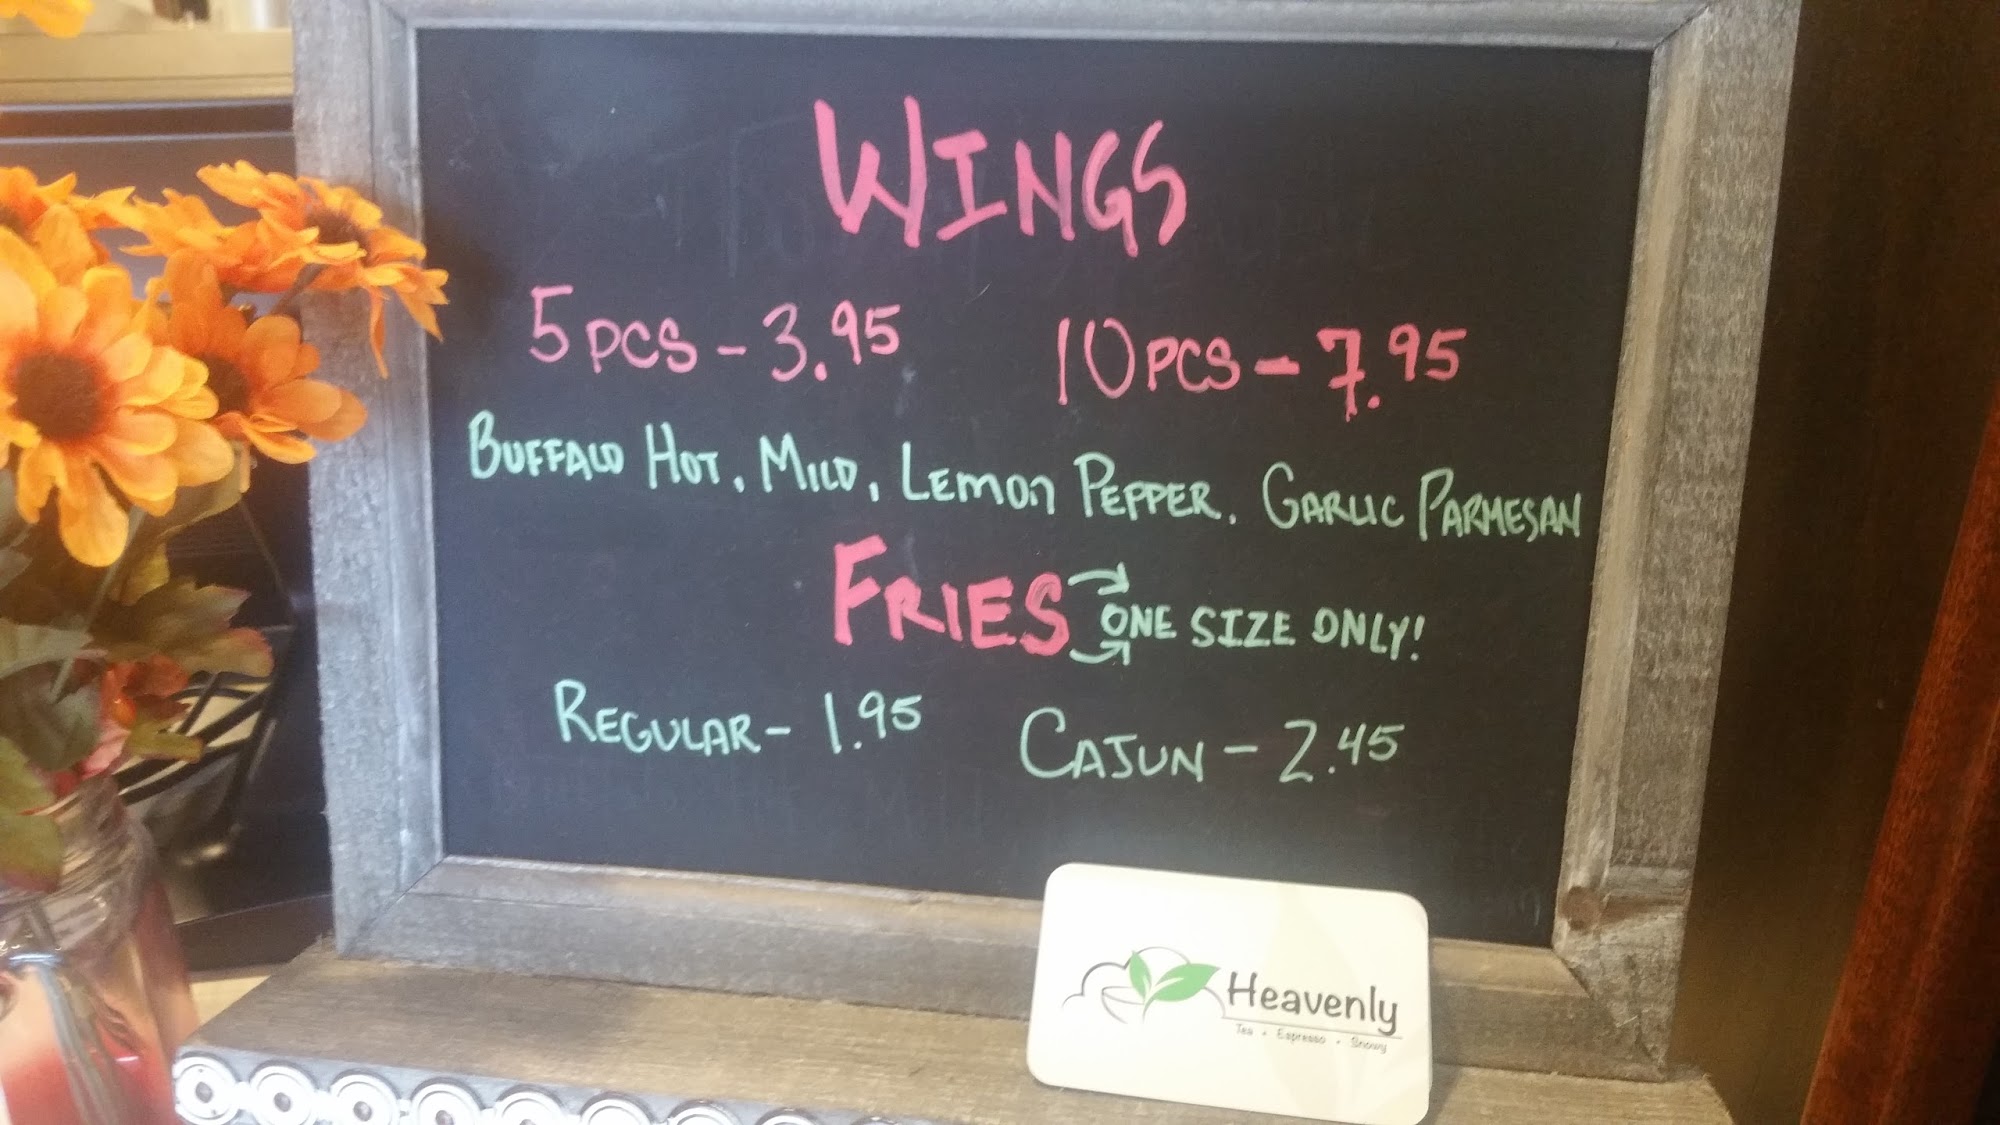 WINGS
5 PCS - 3.95 10 PCS - 7.95
BUFFALO HOT, MILD, LEMON PEPPER, GARLIC PARMESAN
FRIES ONE SIZE ONLY!
REGULAR - 1.95 CAJUN - 2.45
Heavenly
Tea • Espresso • Snowy